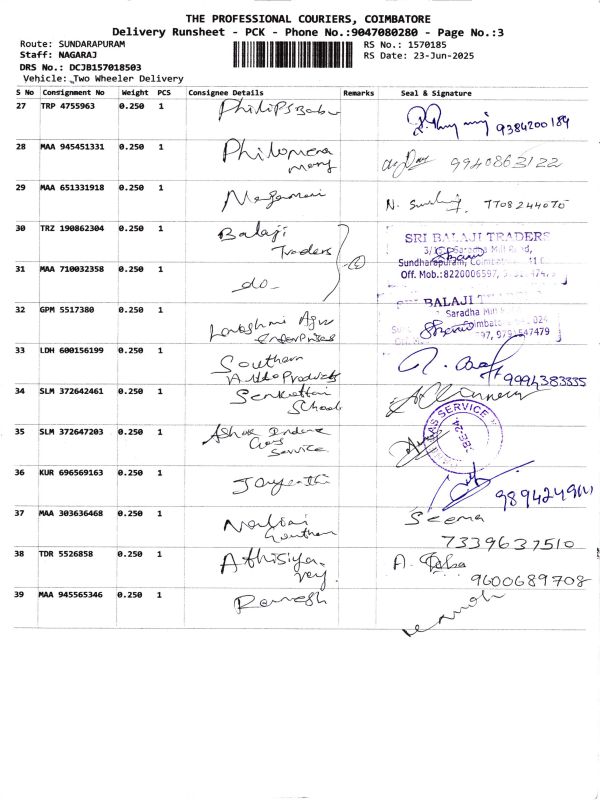 THE PROFESSIONAL COURIERS, COIMBATORE
Delivery Runsheet - PCK - Phone No.:9047080280 - Page No.:3
Route: SUNDARAPURAM RS No.: 1570185
Staff: NAGARAJ RS Date: 23-Jun-2025
DRS No.: DCJB157018503
Vehicle: Two Wheeler Delivery
S No Consignment No Weight PCS Consignee Details Remarks Seal & Signature
27 TRP 4755963 0.250 1 Philips Babu
9384200189
28 MAA 945451331 0.250 1 Philomena
mary 9940863122
29 MAA 651331918 0.250 1
N. 7708244075
30 TRZ 190862304 0.250 1 Balaji
Traders
SRI BALAJI TRADERS
Saradha Mill Road,
Sundharapuram, Coimbatore
31 MAA 710032358 0.250 1 do
Off. Mob.:8220006597,
32 GPM 5517380 0.250 1
BALAJI
Saradha Mill
Enterprises 97, 9791547479
33 LDH 600156199 0.250 1 Southern
Auto Products 9994383335
34 SLM 372642461 0.250 1
School
35 SLM 372647203 0.250 1 Ashok Indane
Gas
Service
GAS SERVICE
36 KUR 696569163 0.250 1 Jayanthi
37 MAA 303636468 0.250 1 Seema
Gowtham 7339637510
38 TDR 5526858 0.250 1 Athisiya
A.
9600689708
39 MAA 945565346 0.250 1 Ramesh